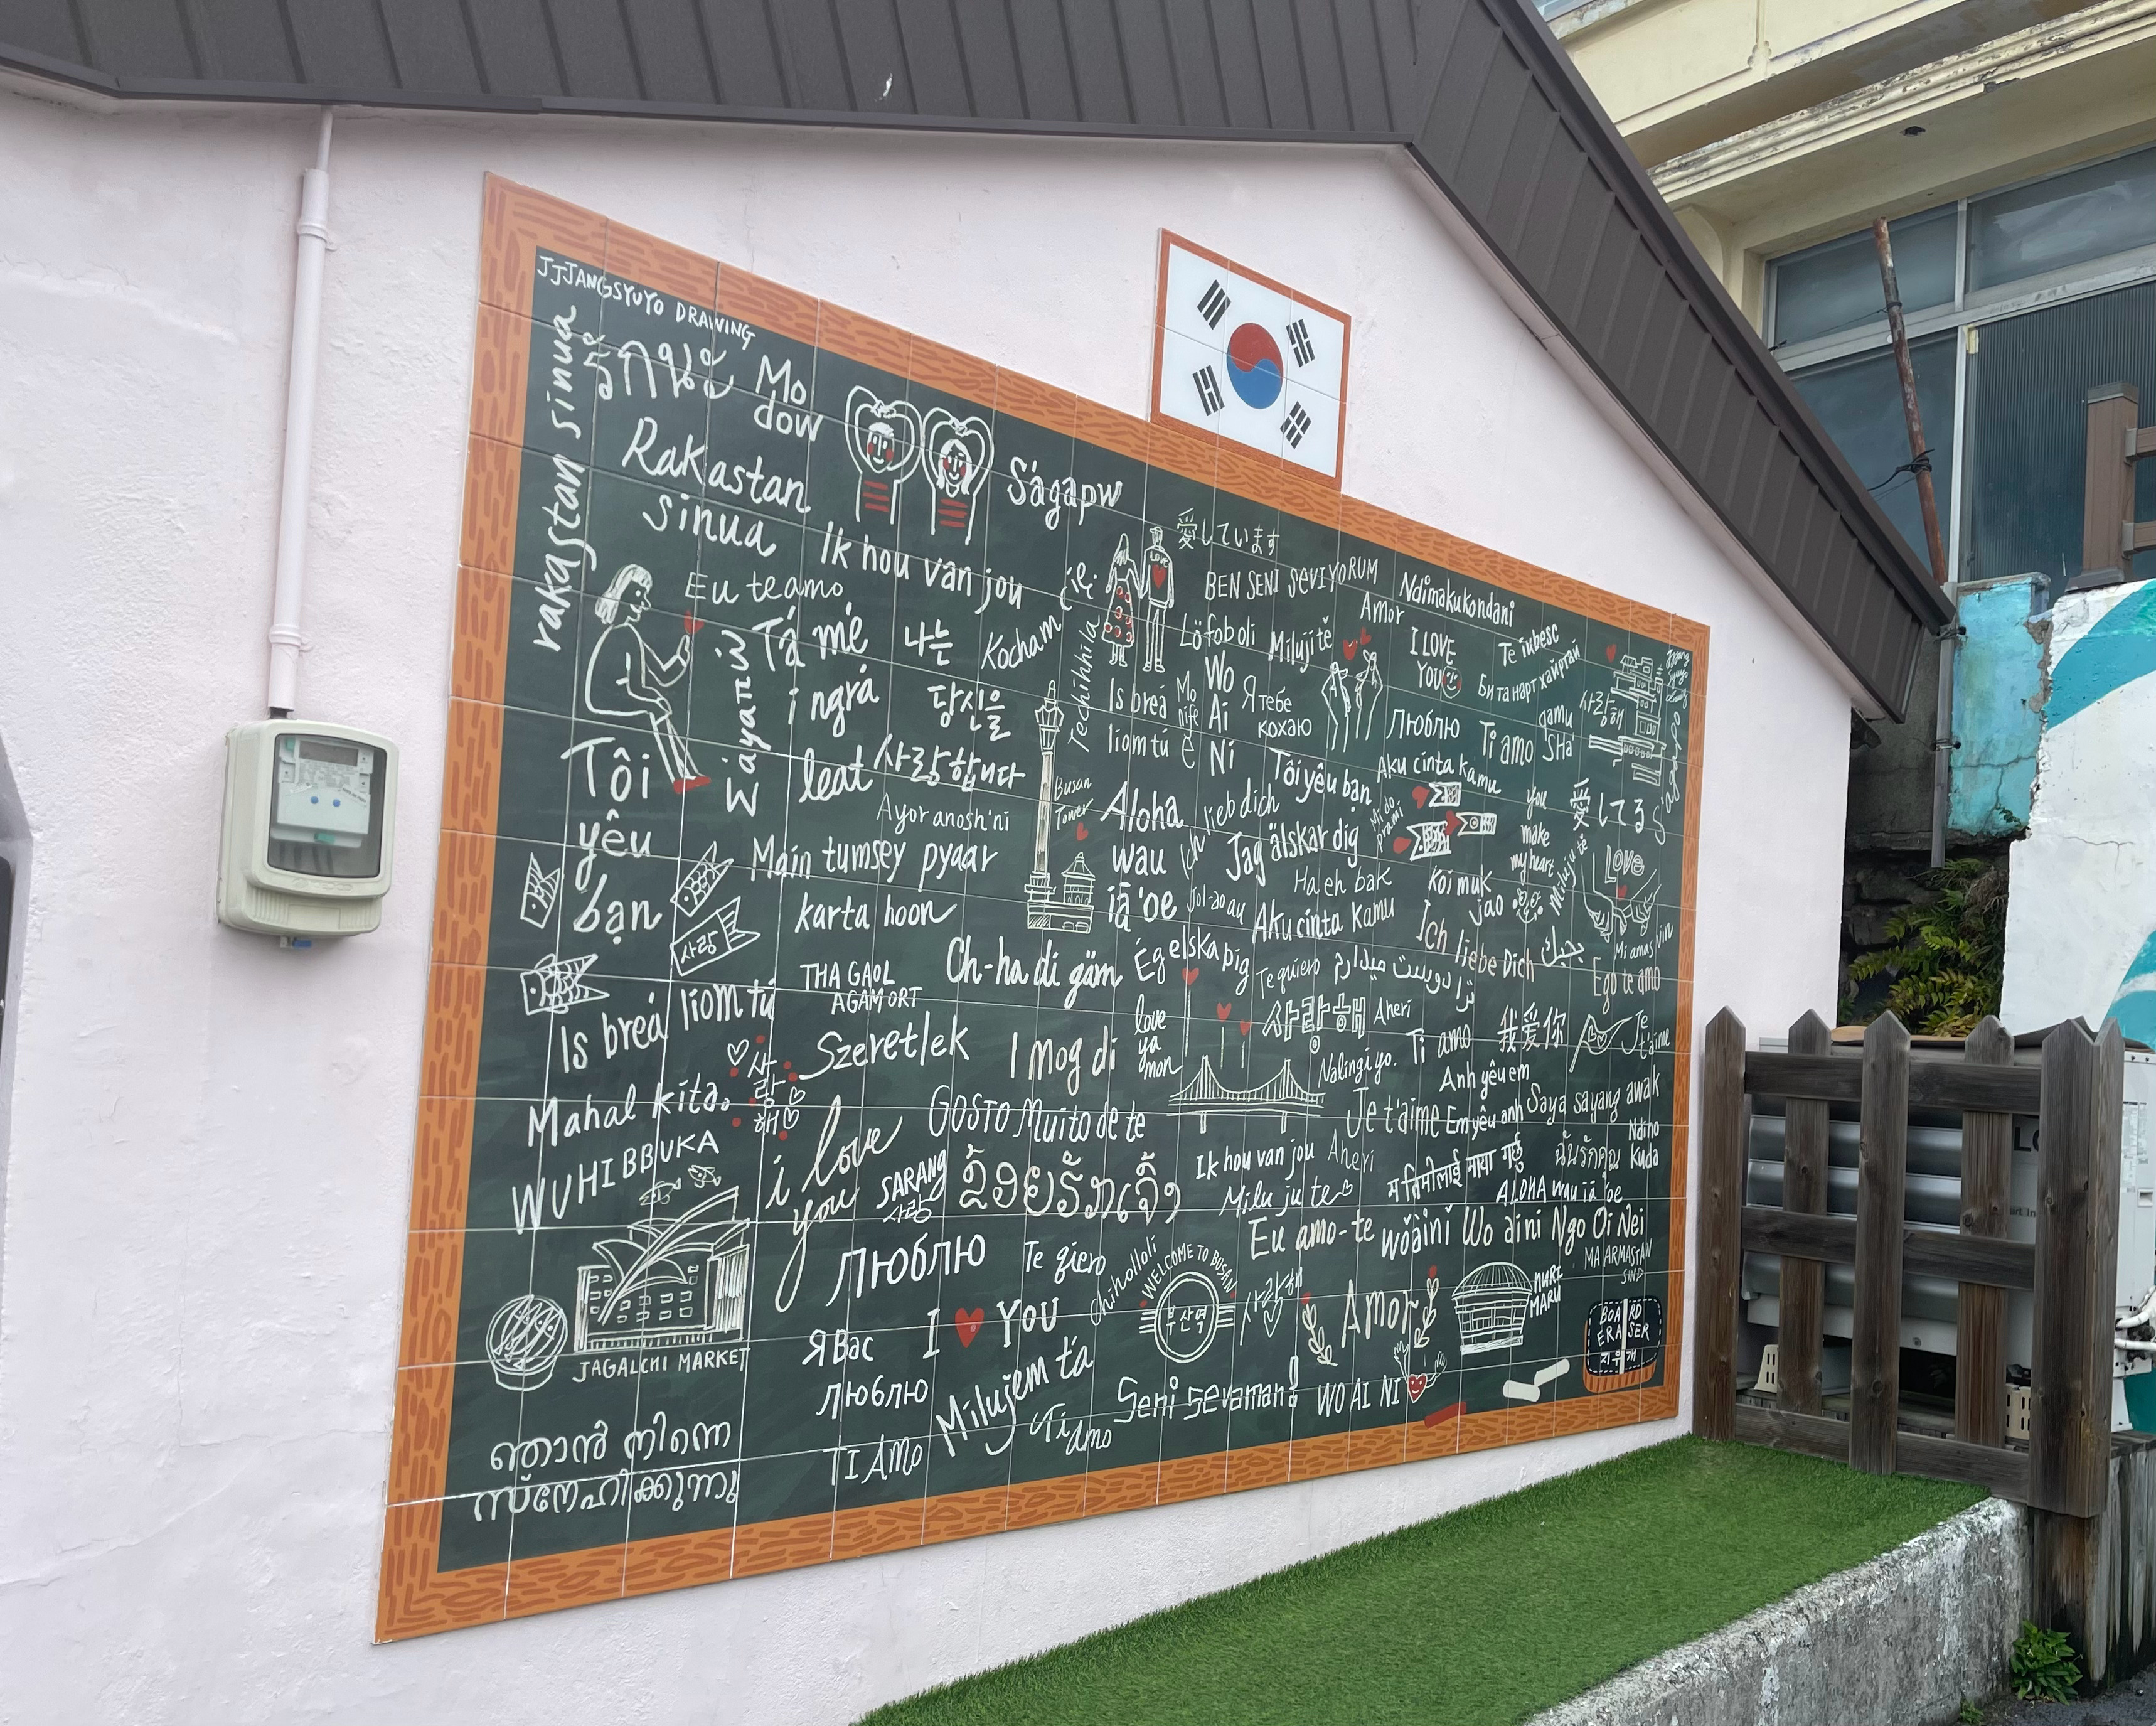 JJJANGSYUYO DRAWING
rakastan sinua
Mo
dow
Rakastan
sinua
Ságapw
Ik hou van jou
愛しています
BEN SENI SEVIYORUM
Ndimakukondani
Eu te amo
Amor
Tá mé
i ngrá
leat
나는
당신을
사랑합니다
Kocham
Techihhila
LOVE
Lö fob oli
Miluji tě
I LOVE
YOU
Te iubesc
Би та нарт хайртай
Σ'αγαπώ
Is breá
liom tú
Wo
Ai
Ni
Я тебе
кохаю
Люблю
Ti amo
gamu
SHa
사랑해
Tôi
yêu
bạn
Ayor anosh'ni
Busan
Tower
Tôi yêu bạn
Aku cinta kamu
Main tumsey pyaar
karta hoon
Aloha
wau
iā 'oe
Ich lieb dich
Jag älskar dig
Mi do
prami
you
make
my heart
愛してる
Love
Miluju tě
Ha eh bak
Koi muk
jao
사랑
Jol-ao ay
Aku cinta kamu
Ich liebe Dich
بحبك
Mi amas vin
THA GAOL
AGAM ORT
Ch-ha di gäm
Ég elska þig
Te quiero
ترا دوست میدارم
Ego te amo
Is breá liom tú
Szeretlek
I mog di
love
ya
mon
사랑해
Aheri
Ti amo
我爱你
Je
t'aime
Mahal kita.
사
랑
해
Nalingi yo.
Anh yêu em
WUHIBBUKA
i love
you
GOSTO Muito de te
Je t'aime
Em yêu anh
Saya sayang awak
SARANG
사랑
ຂ້ອຍຮັກເຈົ້າ
Ik hou van jou
Aheri
Milu ju te
म तिमीलाई माया गर्छु
ฉันรักคุณ
Ndino
Kuda
ALOHA wau iā 'oe
Люблю
Te qiero
Chiholloli
WELCOME TO BUSAN
부산역
Eu amo-te
wǒàinǐ Wo ai ni Ngo Oi Nei
MA ARMASTAN
SIND
JAGALCHI MARKET
Я Вас
люблю
I YOU
사랑해
Amor
NURI
MARU
BOARD
ERASER
지우개
Milujem ťa
Seni sevaman!
WO AI NI
TI AMO
Ti
amo
ഞാൻ നിന്നെ
സ്നേഹിക്കുന്നു